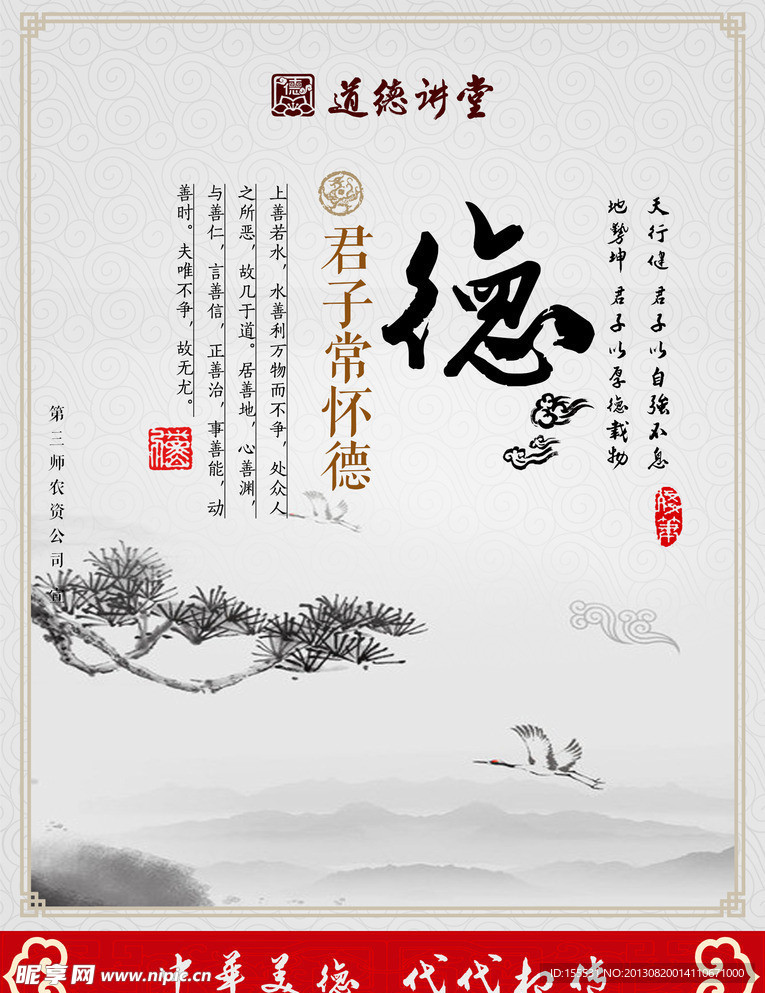 德
道德讲堂
天行健 君子以自強不息
地勢坤 君子以厚德載物
德
君子常怀德
上善若水，水善利万物而不争，处众人
之所恶，故几于道。居善地，心善渊，
与善仁，言善信，正善治，事善能，动
善时。夫唯不争，故无尤。
第三师农资公司宣
中华美德 代代相传
昵享网 www.nipic.cn
ID:155531 NO:20130820014110671000